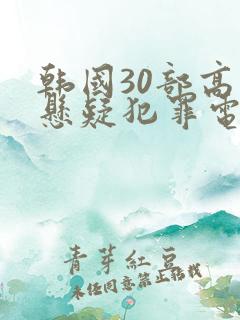 韩国30部高
悬疑犯罪电
青芽红豆
未经同意禁止搭载